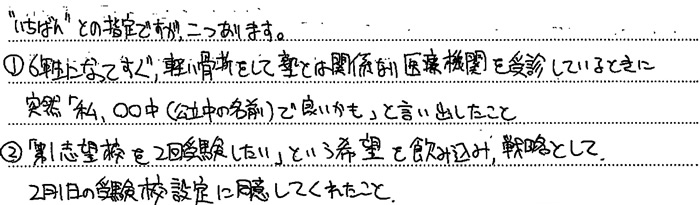 "いちばん"との指定ですが、二つあります。
①6年生になってすぐ、軽い骨折をして塾とは関係ない医療機関を受診しているときに
突然「私、○○中(公立中の名前)で良いかも」と言い出したこと
②「第1志望校を2回受験したい」という希望を飲み込み、戦略として、
2月1日の受験校設定に同意してくれたこと。